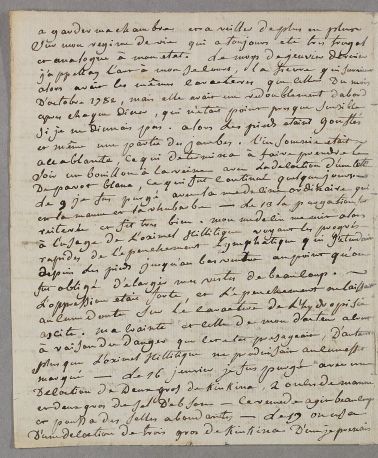 a garder ma chambre et a veiller de plus en plus
sur mon regime de vie qui a toujours eté tres frugal
et analogue à mon etat. le mois de janvier dernier
j'appellay l'art a mon secours, la fievre qui survint
alors avoit les mêmes caracteres que celle du mois
d'octobre 1782, mais elle avoit un redoublement d'abord
apres chaque diner, qui n'etait point presque sensible
si je ne dinais pas. alors les pieds etaient gonflés
et même une partie des jambes. l'insomnie etait
accablante, ce qui determina à faire prendre le
soir un bouillon à la reine avec la decoction d'une tête
de pavot blanc, ce qui fut continué quelques jours
le 9 je fus purgé avec la medecine ordinaire qui
et la manne et la rhubarbe — le 13 la purgation fut
reiterée et fit tres bien. mon medecin me mit alors
à l'usage de l'oximel scillitique voyant les progrès
rapides de l'epanchement lymphatique qui s'etendait
depuis les pieds jusqu'au bas ventre au point qu'on
fut obligé d'elargir mes vestes de beaucoup. —
l'oppression etait forte et l'epanchement ne laissait
aucun doute sur le caractere de l'hydropisie
ascite. ma crainte et celle de mon docteur alors
à raison du danger que cet etat presageait, d'autant
plus que l'oximel scillitique ne produisait aucun effet
marqué — le 16 janvier je fus purgé avec une
decoction de deux gros de kinkina, 2 onces de manne
et deux gros de sel d'ebsom — ce remede agit beaucoup
et poussa des selles abondantes — le 19 on usa
d'une decoction de trois gros de kinkina dont je prenais